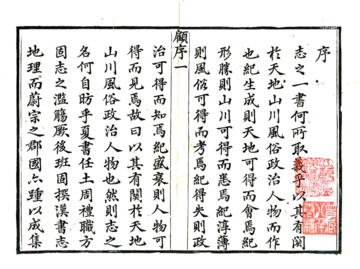 序
志之一書何所取義乎以其有関
於天地山川風俗政治人物而作
也紀生成則天地可得而會焉紀
形勝則山川可得而悉焉紀淳薄
則風俗可得而考焉紀得失則政
顧序 一
治可得而知焉紀盛衰則人物可
得而見焉故曰以其有関於天地
山川風俗政治人物也然則志之
名何自昉乎夏書任土周禮職方
固志之濫觴厥後班固撰漢書志
地理而蔚宗之郡國亦踵以成集